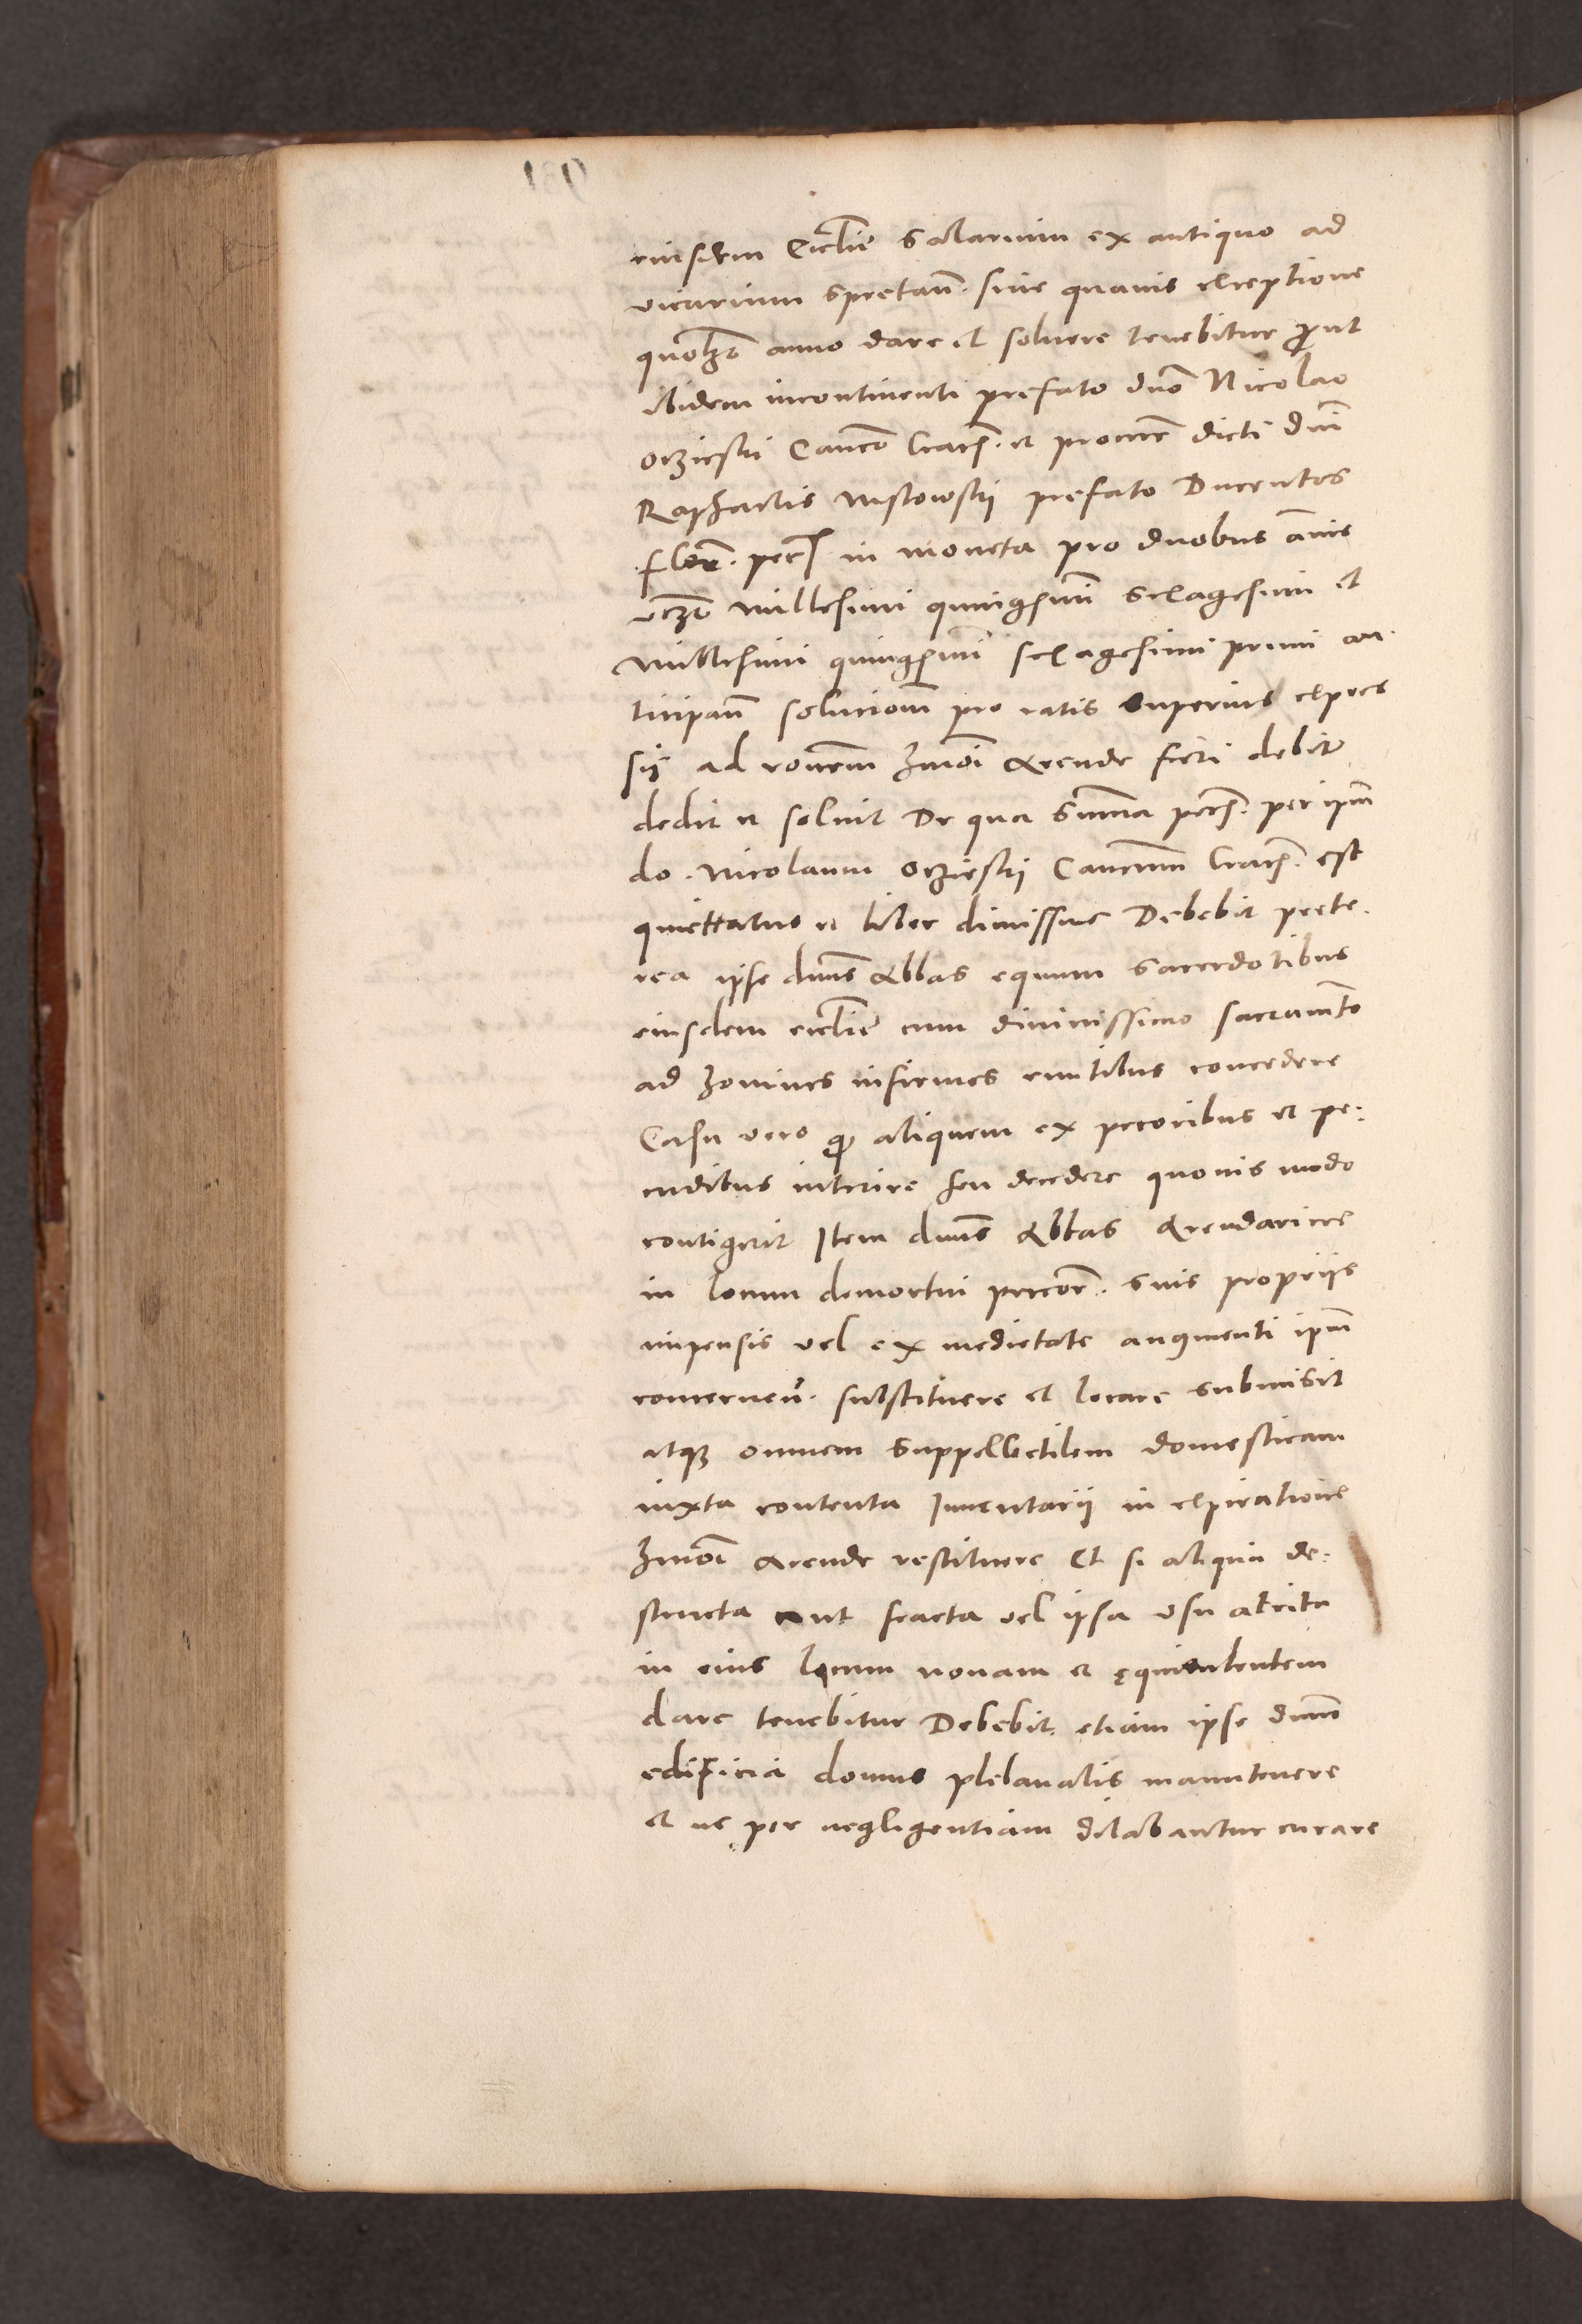 eiusdem Ecclie Salarium ex antiquo ad
vicarium spectan̄. sine quavis exceptione
quolȝt anno dare et solvere tenebitur prout
ibidem incontinenti prefato dn̄o Nicolao
Cancō Crac̄. et procrē dicti dn̄i
Raphaelis prefato Ducentos
flor̄. in moneta pro duobus ānis
vcȝt millesimi quingesimi sexagesimi et
millesimi quingesimi sexagesimi primi an
ticipan̄ solucionem pro ratis superius expres
sis ad ronem hmoī Arende fieri debit
dedit et solvit De qua Summa per ipm̄
do. Nicolaum Cancum Crac̄. est
quiettatus et liber dimissus Debebit prete
rea ipse dnūs Abbas equum sacerdotibus
eiusdem ecclie cum divinissimo sacramto
ad homines infirmos euntibus concedere
Casu vero quo aliquem ex pecoribus et pe:
cudibus interire seu decedere quovis modo
contigerit Idem dnūs Abbas Arendarius
in locum demortui pecor̄. suis propriis
impensis vel ex medietate augmenti ipm̄
concernen̄. substituere et locare submisit
atque omnem suppellectilem domesticam
iuxta contenta Inventarii in expiratione
hmoī Arende restituere Et si aliqua de:
structa aut fracta vel ipsa usu attrita
in eius locum novam et ęquivalentem
dare tenebitur Debebit etiam ipse dnūs
edificia domus plebanalis manutenere
et ne per negligentiam dilabantur curare